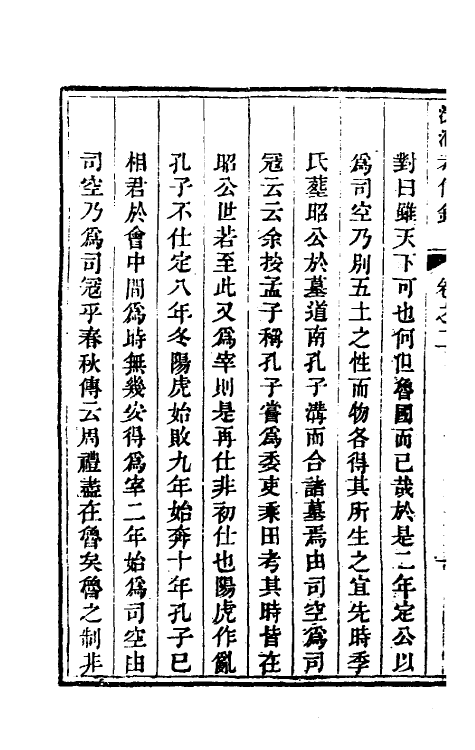 卷之二
對曰雖天下可也何但魯國而已哉於是二年定公以
爲司空乃別五土之性而物各得其所生之宜先時季
氏葬昭公於墓道南孔子溝而合諸墓焉由司空爲司
寇云云余按孟子稱孔子嘗爲委吏乘田考其時皆在
昭公世若至此又爲宰則是再仕非初仕也陽虎作亂
孔子不仕定八年冬陽虎始敗九年始奔十年孔子已
相君於會中間爲時無幾安得爲宰二年始爲司空由
司空乃爲司寇乎春秋傳云周禮盡在魯矣魯之制非